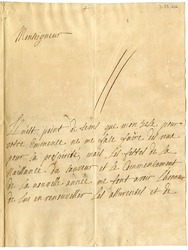 Monseigneur
Il n'est point de jours que mon zele pour
votre Eminence ne me fasse faire des vœux
pour sa prosperité, mais les fêtes de la
Naissance du Sauveur et le Commencement
de la nouvelle année me font avoir l'honneur
de lui en renouveller les assurances, et de